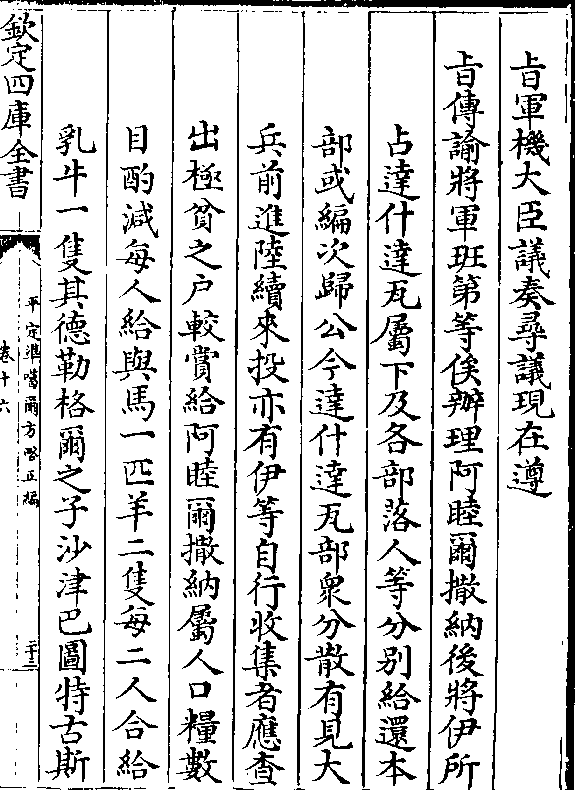 旨軍機大臣議奏尋議現在遵
旨傳諭將軍班第等俟辦理阿睦爾撒納後將伊所
占達什達瓦屬下及各部落人等分別給還本
部或編次歸公今達什達瓦部衆分散有見大
兵前進陸續來投亦有伊等自行收集者應查
出極貧之户較賞給阿睦爾撒納屬人口糧數
目酌減每人給與馬一匹羊二隻每二人合給
乳牛一隻其德勒格爾之子沙津巴圖特古斯
欽定四庫全書
平定準噶爾方略正編
卷十六
二十三